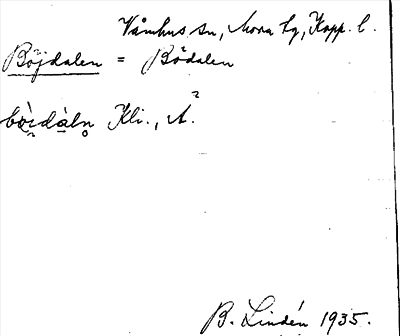 Våmhus sn, Mora tg, Kopp. l.
Böjdalen = Bödalen
bòi̯dàln̥ Kli., A.²
B. Lindén 1935.